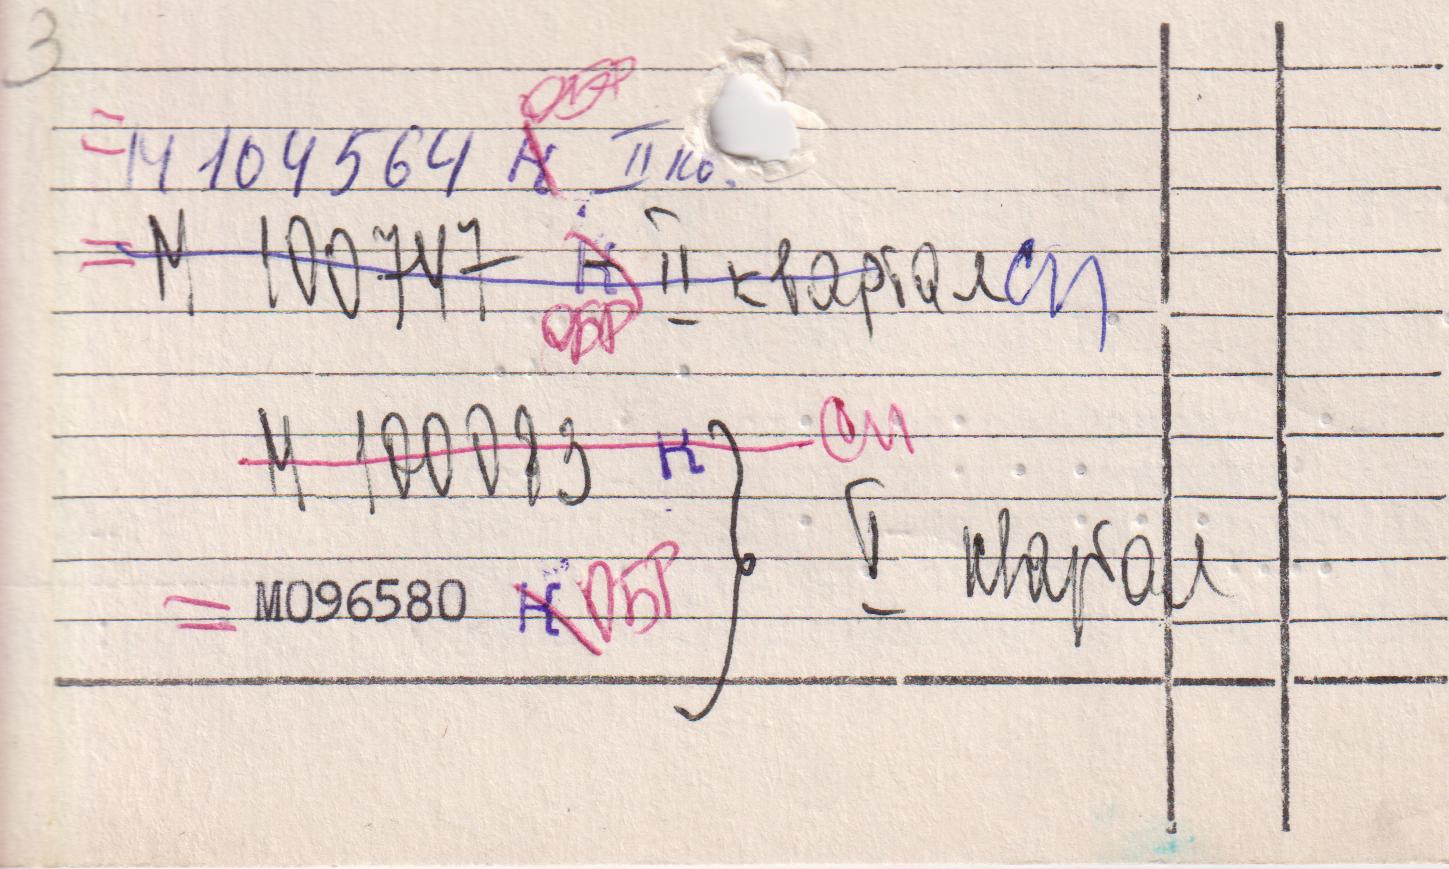 3
ОБР
М 104564 К II кв.
М 100747 К II квартал СП
ОБР
М 100083 К СП
I квартал
М096580 К ОБР